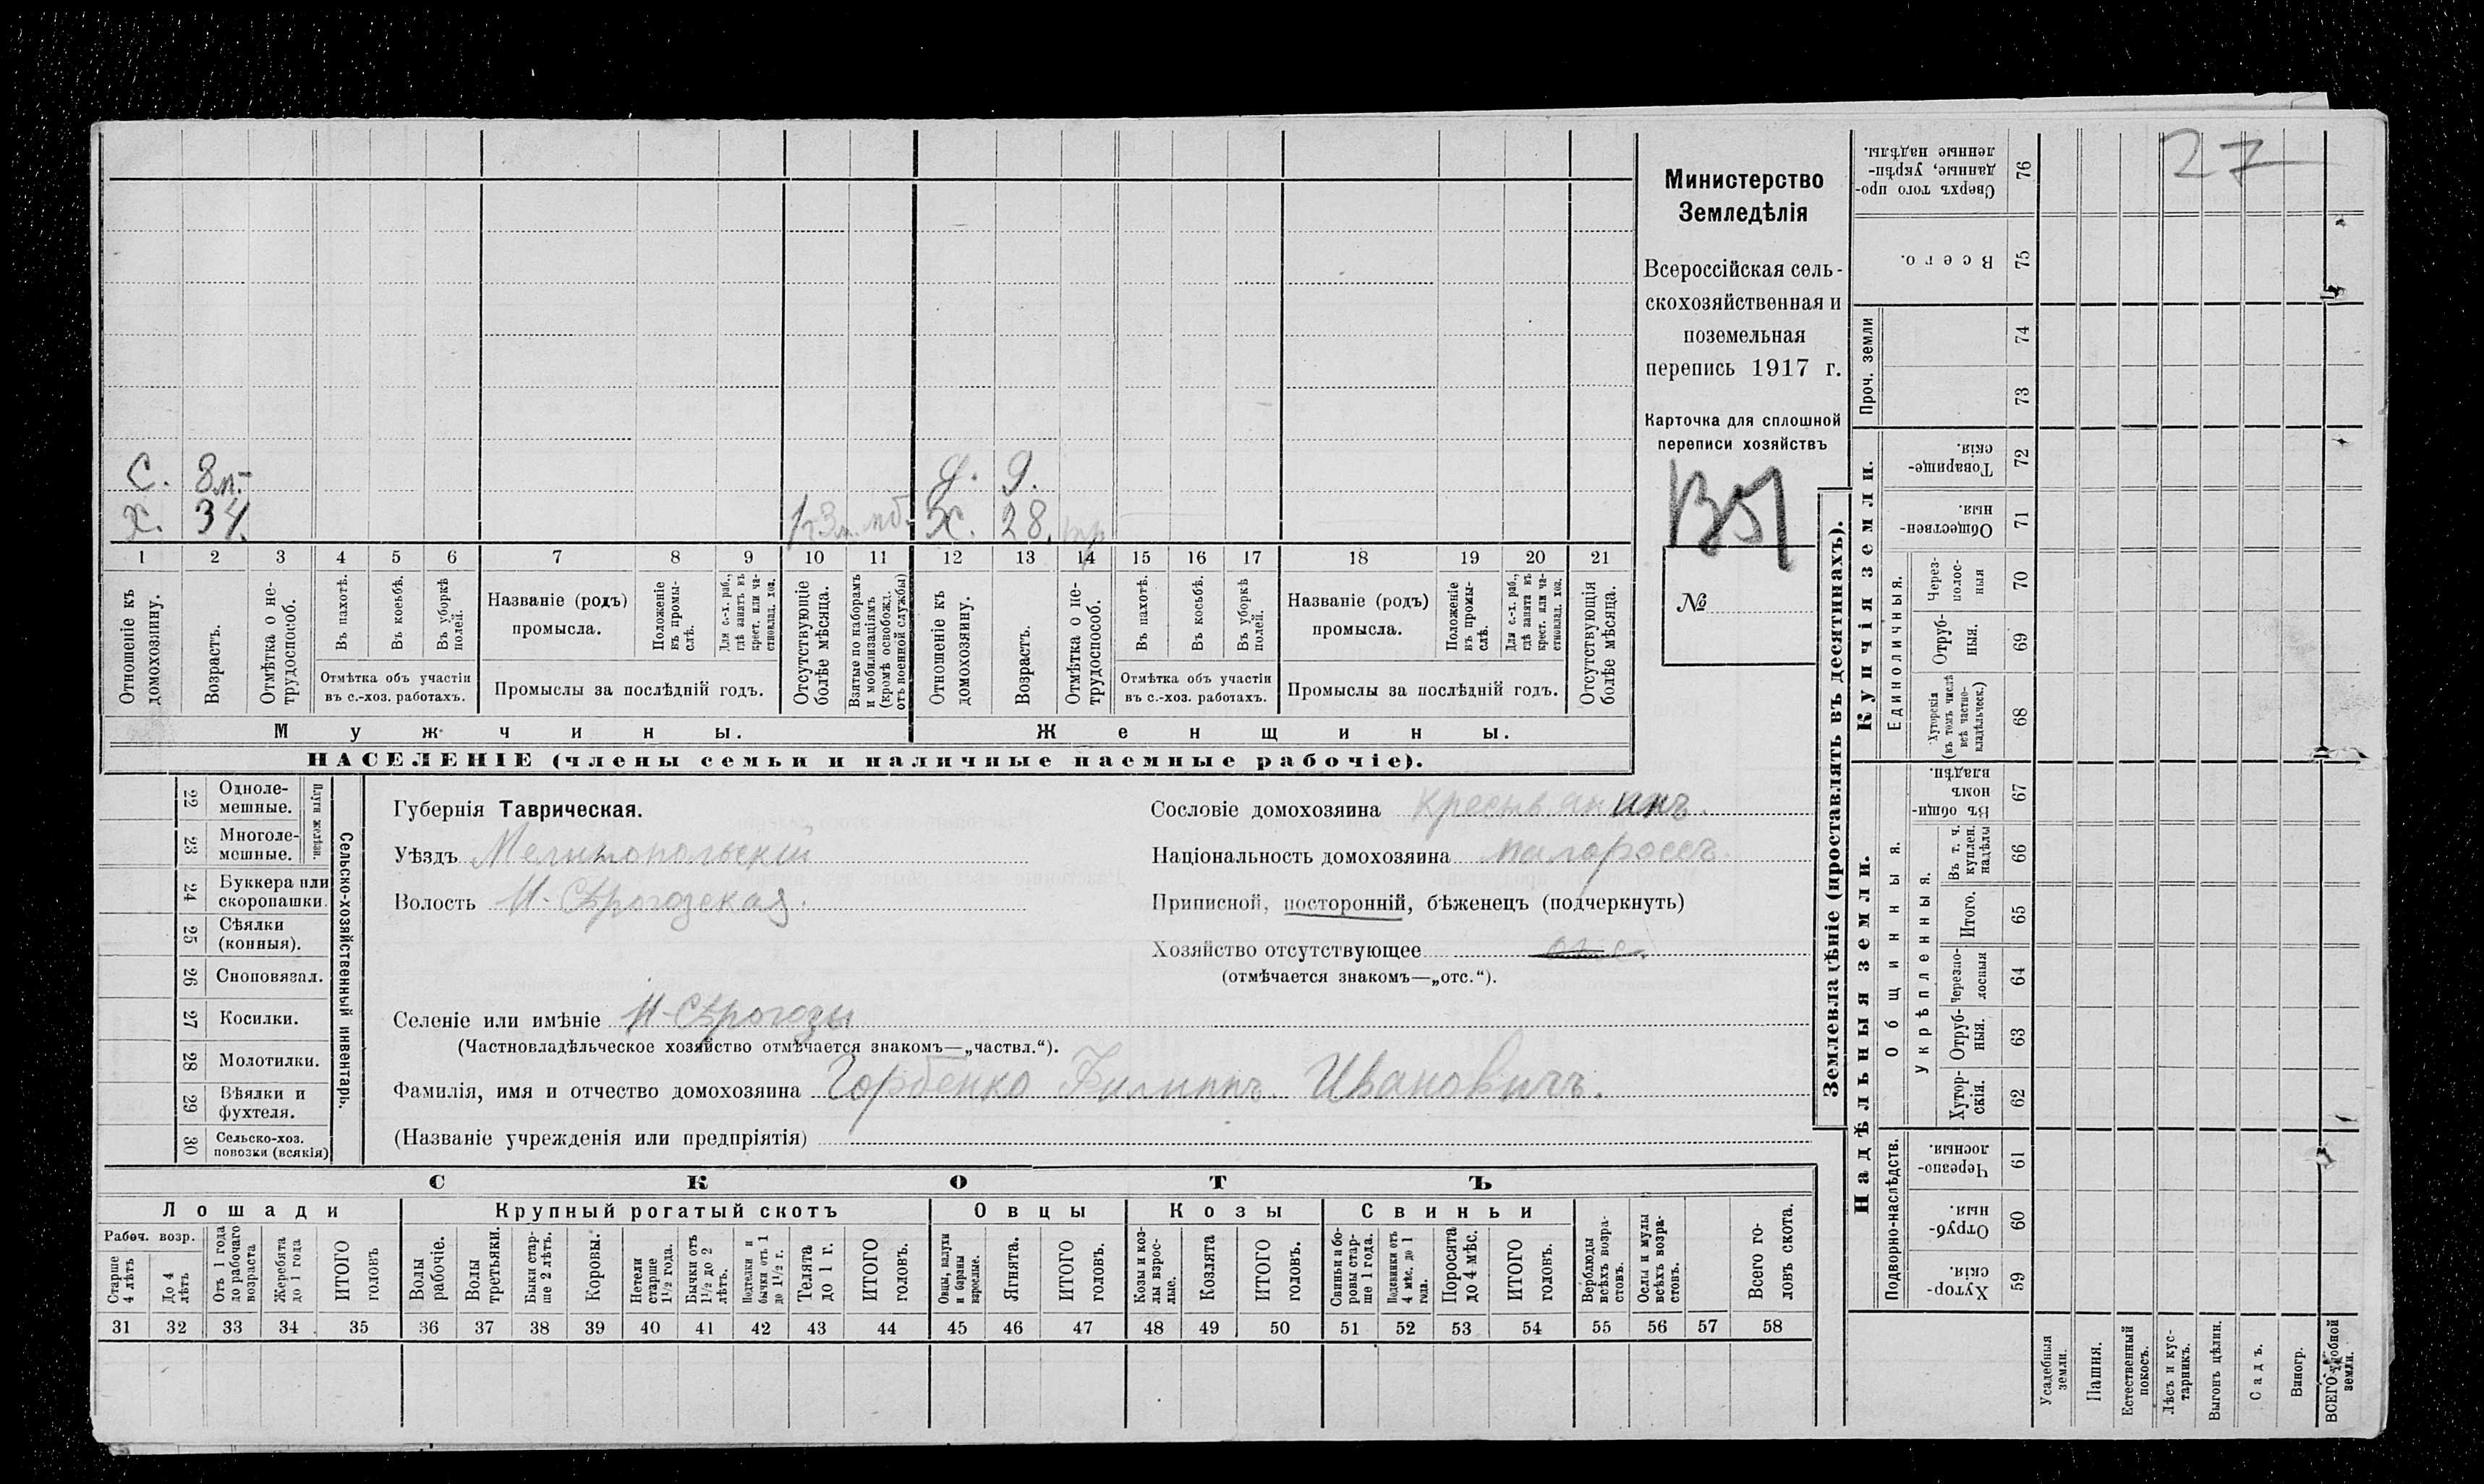 27
Министерство
Земледѣлія
Всероссійская сель-
скохозяйственная и
поземельная
перепись 1917 г.
Карточка для сплошной
переписи хозяйствъ
№
С. 8 л. д. 9.
Х. 34. 1 г 3 м. моб. Ж. 28.
1 2 3 4 5 6 7 8 9 10 11 12 13 14 15 16 17 18 19 20 21
Отношеніе къ домохозяину.
Возрастъ.
Отмѣтка о не-трудоспособ.
Въ пахотѣ.
Въ косьбѣ.
Въ уборкѣ полей.
Отмѣтка объ участіи
въ с.-хоз. работахъ.
Названіе (родъ)
промысла.
Положеніе въ промы-слѣ.
Для с.-х. раб., гдѣ занятъ въ крест. или ча-стновлад. хоз.
Промыслы за послѣдній годъ.
Отсутствующіе болѣе мѣсяца.
Взятые по наборамъ и мобилизаціямъ (кромѣ освобожд. отъ военной службы)
Отношеніе къ домохозяину.
Возрастъ.
Отмѣтка о не-трудоспособ.
Въ пахотѣ.
Въ косьбѣ.
Въ уборкѣ полей.
Отмѣтка объ участіи
въ с.-хоз. работахъ.
Названіе (родъ)
промысла.
Положеніе въ промы-слѣ.
Для с.-х. раб., гдѣ занята въ крест. или ча-стновлад. хоз.
Промыслы за послѣдній годъ.
Отсутствующія болѣе мѣсяца.
Мужчины. Женщины.
НАСЕЛЕНІЕ (члены семьи и наличные наемные рабочіе).
Сельско-хозяйственный инвентарь.
Плуги желѣзн.
22 Одноле-мешные.
23 Многоле-мешные.
24 Буккера или скоропашки.
25 Сѣялки (конныя).
26 Сноповязал.
27 Косилки.
28 Молотилки.
29 Вѣялки и фухтеля.
30 Сельско-хоз. повозки (всякія)
Губернія Таврическая.
Уѣздъ Мелитопольскій
Волость Н-Сѣрогозская.
Селеніе или имѣніе Н-Сѣрогозы
(Частновладѣльческое хозяйство отмѣчается знакомъ—„частвл.“).
Фамилія, имя и отчество домохозяина Горбенко Филиппъ Ивановичъ.
(Названіе учрежденія или предпріятія)
Сословіе домохозяина Крестьянинъ.
Національность домохозяина малороссъ.
Приписной, посторонній, бѣженецъ (подчеркнуть)
Хозяйство отсутствующее отс.
(отмѣчается знакомъ—„отс.“).
СКОТЪ
Лошади Крупный рогатый скотъ Овцы Козы Свиньи
Рабоч. возр.
Старше 4 лѣтъ
До 4 лѣтъ
Отъ 1 года до рабочаго возраста
Жеребята до 1 года
ИТОГО головъ
Волы рабочіе.
Волы третьяки.
Быки стар-ше 2 лѣтъ.
Коровы.
Нетели старше 1½ года.
Бычки отъ 1½ до 2 лѣтъ.
Подтелки и бычки отъ 1 до 1½ г.
Телята до 1 г.
ИТОГО головъ.
Овцы, валухи и бараны взрослые.
Ягнята.
ИТОГО головъ.
Козы и коз-лы взрос-лые.
Козлята
ИТОГО головъ.
Свиньи и бо-ровы стар-ше 1 года.
Подсвинки отъ 4 мѣс. до 1 года.
Поросята до 4 мѣс.
ИТОГО головъ.
Верблюды всѣхъ возра-стовъ.
Ослы и мулы всѣхъ возра-стовъ.
Всего го-ловъ скота.
31 32 33 34 35 36 37 38 39 40 41 42 43 44 45 46 47 48 49 50 51 52 53 54 55 56 57 58
Землевладѣніе (проставлять въ десятинахъ).
Надѣльныя земли. Купчія земли. Проч. земли
Подворно-наслѣдств.
Общинныя.
Укрѣпленныя.
Единоличныя.
Сверхъ того про-данные, укрѣп-ленные надѣлы. 76
Всего. 75
74
73
Товарище-скія 72
Обществен-ныя. 71
Через-полос-ныя 70
Отруб-ныя. 69
Хуторскія (въ томъ числѣ всѣ частно-владѣльческ.) 68
Въ общин-номъ владѣн. 67
Въ т. ч. куплен. надѣлы 66
Итого. 65
Черезпо-лосныя 64
Отруб-ныя. 63
Хутор-скія. 62
Черезпо-лосныя. 61
Отруб-ныя. 60
Хутор-скія. 59
Усадебныя земли.
Пашня.
Естественный покосъ.
Лѣсъ и кус-тарникъ.
Выгонъ цѣлин.
Садъ.
Виногр.
ВСЕГО удобной земли.